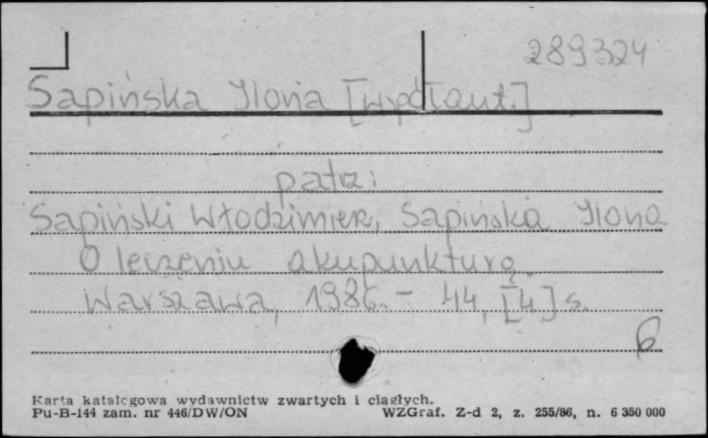 289324
Sapińska Ilona [współaut.]
patrz:
Sapiński Włodzimierz, Sapińska Ilona
O leczeniu akupunkturą.
Warszawa, 1986. - 44, [4] s.
6
Karta katalogowa wydawnictw zwartych i ciągłych.
Pu-B-144 zam. nr 446/DW/ON WZGraf. Z-d 2, z. 255/86, n. 6 350 000